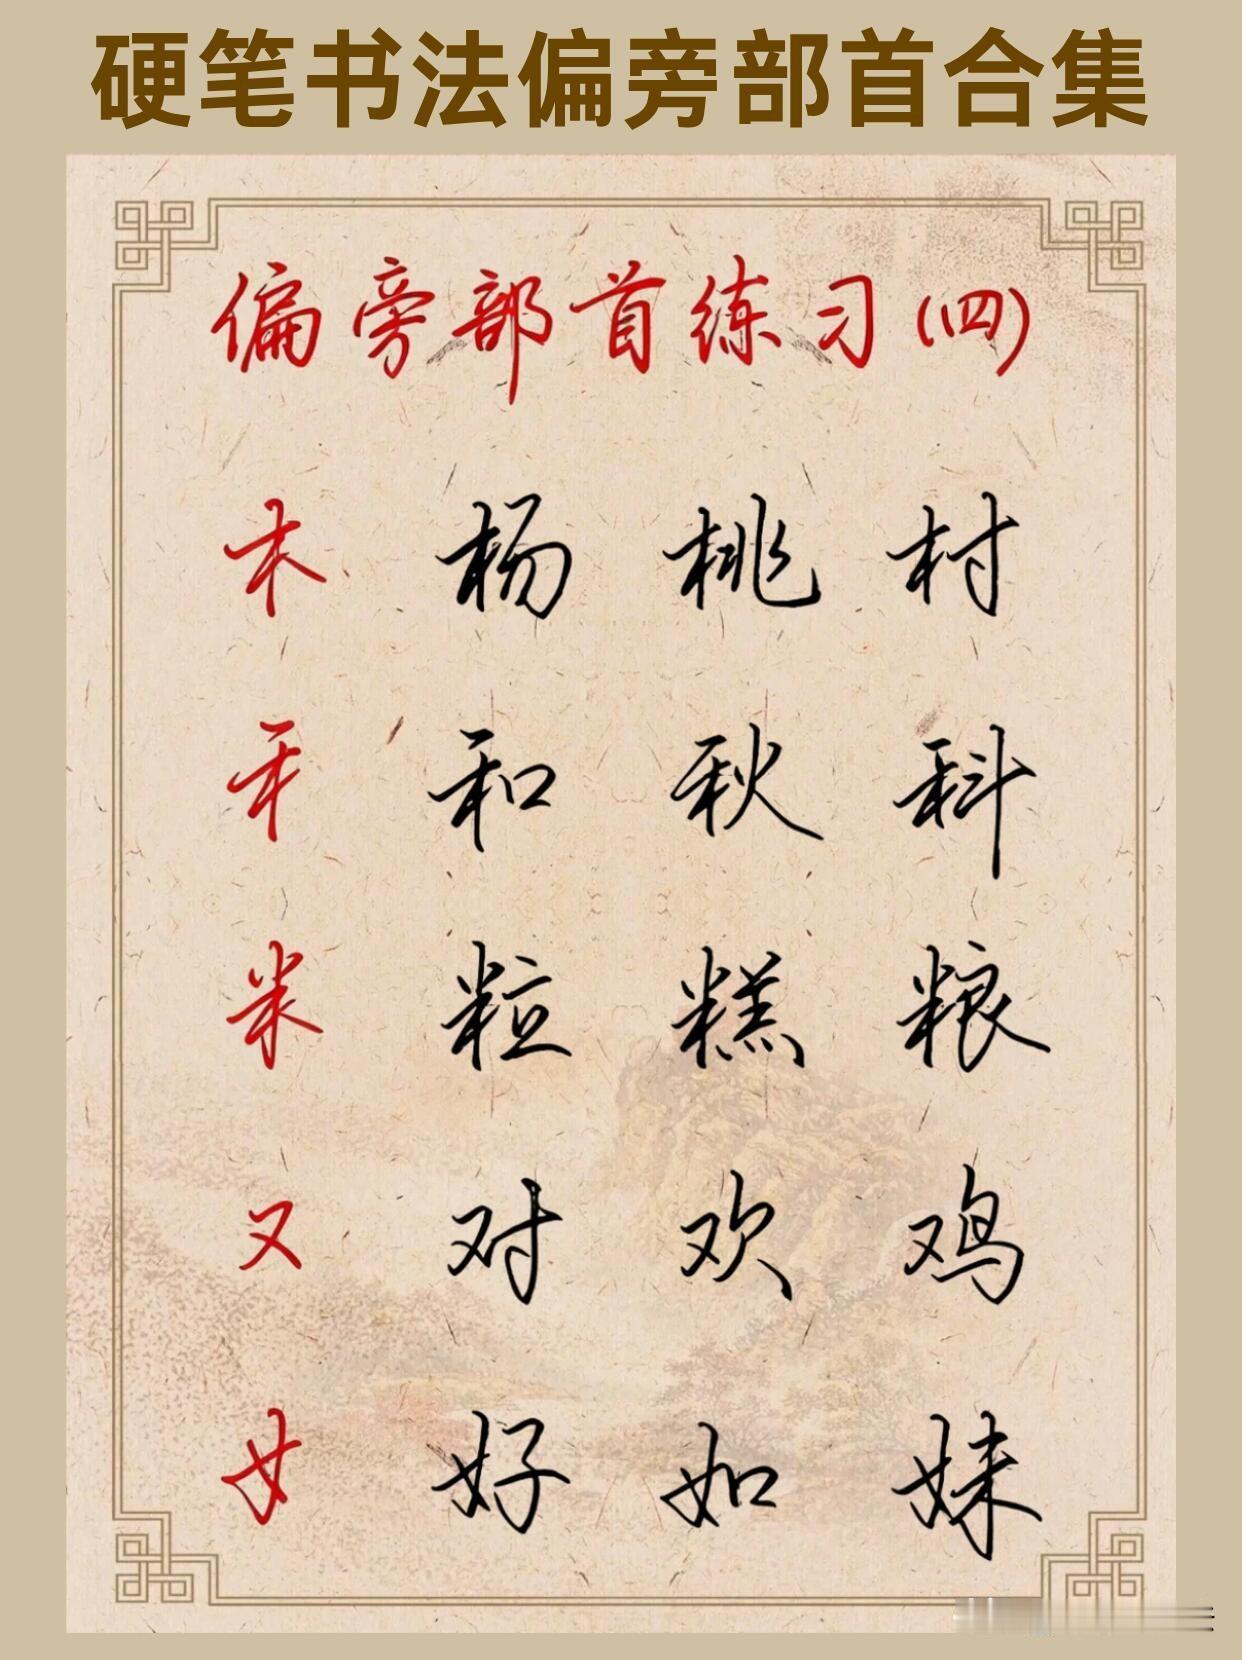 硬笔书法偏旁部首合集
偏旁部首练习(四)
木 杨 桃 村
禾 和 秋 科
米 粒 糕 粮
又 对 欢 鸡
女 好 如 妹